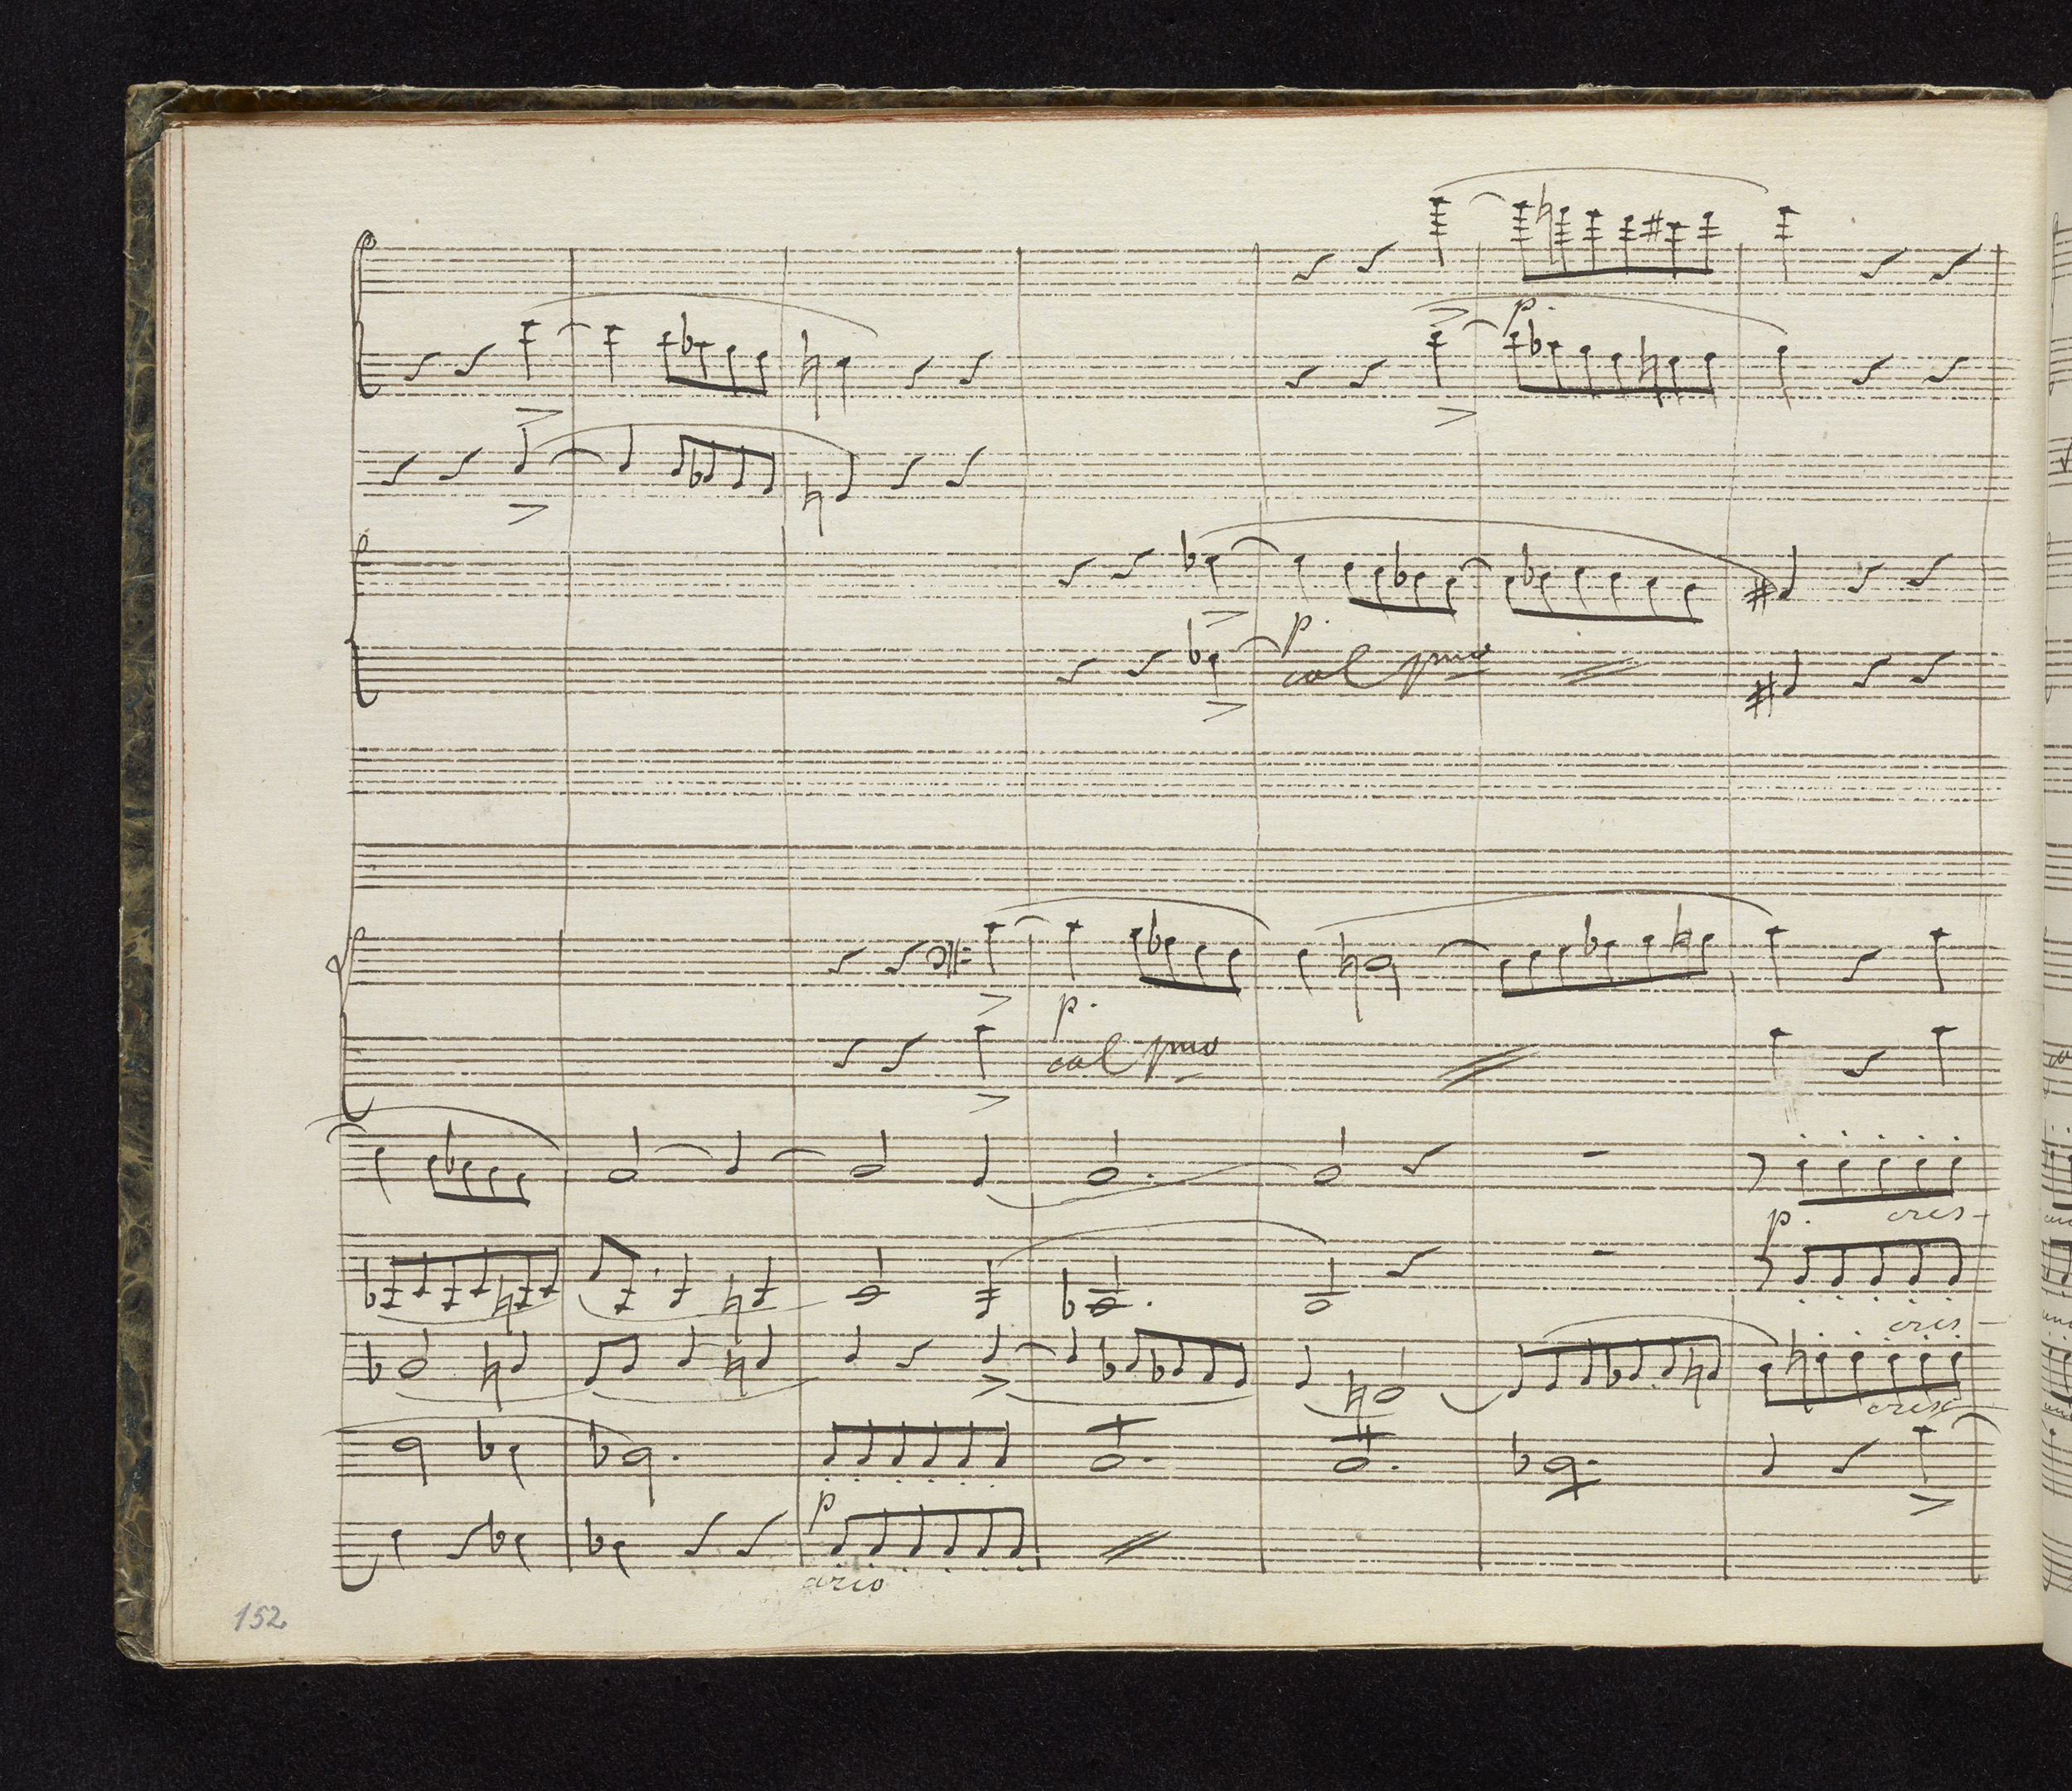 p.
p.
col pmo
p.
col pmo
p. cres-
cres-
cres
p
arco
152